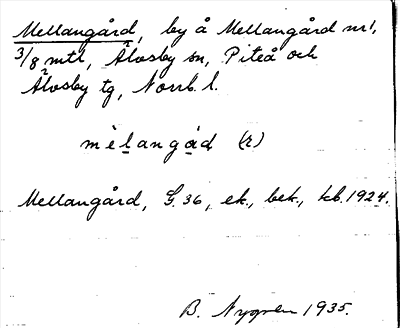 Mellangård, by å Mellangård nr 1,
3/8 mtl, Älvsby sn, Piteå och
Älvsby tg, Norrb. l.
mèlangaḍ (r)
Mellangård, G. 36, ek., bek., kb. 1924.
B. Nygren 1935.